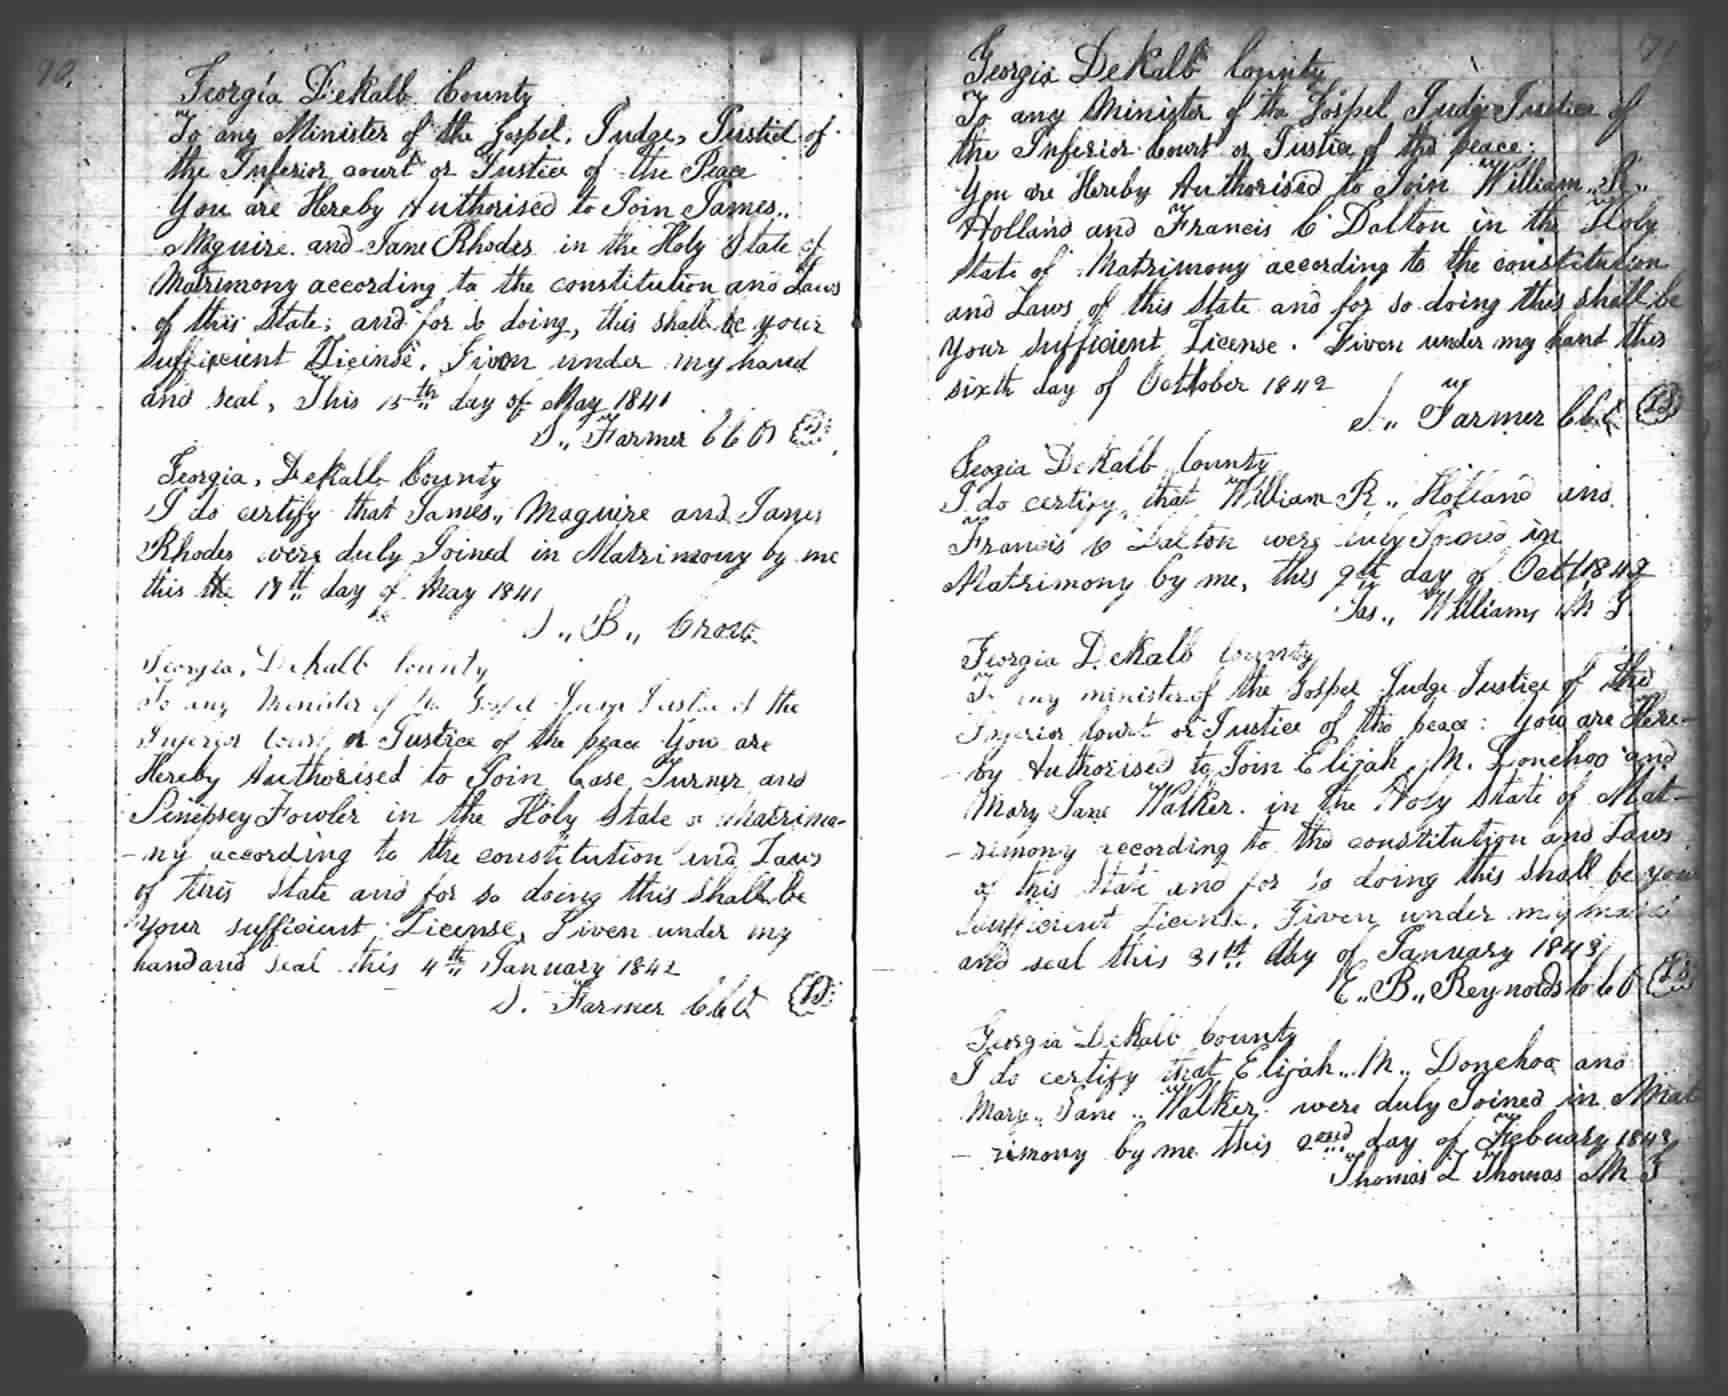 90.
Georgia DeKalb County
To any Minister of the Gospel, Judge, Justice of
the Inferior court or Justice of the Peace
You are Hereby Authorised to Join James,,
Maguire and Jane Rhodes in the Holy State of
Matrimony according to the constitution and Laws
of this State; and for so doing, this shall be your
sufficient License. Given under my hand
and seal, This 15th day of May 1841
J,, Farmer C C O LS
Georgia, DeKalb County
I do certify that James,, Maguire and Jane
Rhodes were duly Joined in Matrimony by me
this the 18th day of May 1841
J,, B,, Crow
Georgia, DeKalb County
To any Minister of the Gospel Judge Justice of the
Inferior Court or Justice of the peace You are
Hereby Authorised to Join Case Turner and
Penepsey Fowler in the Holy State of Matrimo-
-ny according to the constitution and Laws
of this State and for so doing this shall be
your sufficient License, Given under my
hand and seal this 4th January 1842
J. Farmer C C O LS
91
Georgia DeKalb County
To any Minister of the Gospel Judge Justice of
the Inferior Court or Justice of the peace:
You are Hereby Authorised to Join William,, R,,
Holland and Francis C Dalton in the Holy
State of Matrimony according to the constitution
and Laws of this State and for so doing this shall be
your sufficient License. Given under my hand this
sixth day of October 1842
J,, Farmer C C O LS
Geogia DeKalb County
I do certify, that William R,, Holland and
Francis C Dalton were duly Joined in
Matrimony by me, this 9th day of Oct 1842
Jas,, Williams M G
Georgia DeKalb County
To any minister of the Gospel Judge Justice of the
Inferior Court or Justice of the peace: You are Here-
-by Authorised to Join Elijah M. Donehoo and
Mary Jane Walker in the Holy State of Mat-
-rimony according to the constitution and Laws
of this State and for so doing this shall be your
sufficient License. Given under my hand
and seal this 31st day of January 1843
E,, B,, Reynolds C C O LS
Georgia DeKalb County
I do certify that Elijah,, M,, Donehoo and
Mary,, Jane,, Walker were duly Joined in Mat
-rimony by me this 2nd day of Febuary 1843
Thomas L Thomas M G